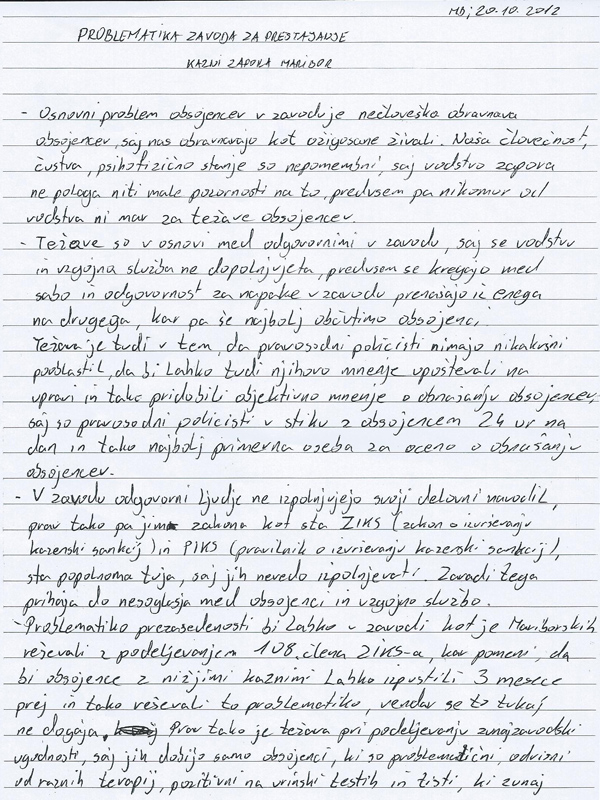 MB, 20.10.2012
PROBLEMATIKA ZAVODA ZA PRESTAJANJE
KAZNI ZAPORA MARIBOR
- Osnovni problem obsojencev v zavodu je nečloveška obravnava
obsojencev, saj nas obravnavajo kot ožigosane živali. Naša človečnost,
čustva, psihofizično stanje so nepomembni, saj vodstvo zapora
ne pologa niti male pozornosti na to, predvsem pa nikomur od
vodstva ni mar za težave obsojencev.
- Težave so v osnovi med odgovornimi v zavodu, saj se vodstvo
in vzgojna služba ne dopolnjujeta, predvsem se kregajo med
sabo in odgovornost za napake v zavodu prenašajo iz enega
na drugega, kar pa še najbolj občutimo obsojenci.
Težava je tudi v tem, da pravosodni policisti nimajo nikakršni
pooblastil, da bi lahko tudi njihovo mnenje upoštevali na
upravi in tako pridobili objektivno mnenje o obnašanju obsojencev,
saj so pravosodni policisti v stiku z obsojencem 24 ur na
dan in tako najbolj primerna oseba za oceno o obnašanju
obsojencev.
- V zavodu odgovorni ljudje ne izpolnjujejo svoji delovni navodil,
prav tako pa jim zakona kot sta ZIKS (zakon o izvrševanju
kazenski sankcij) in PIKS (pravilnik o izvrševanju kazenski sankcij),
sta popolnoma tuja, saj jih nevedo izpolnjevati. Zaradi tega
prihaja do nesoglasja med obsojenci in vzgojno službo.
- Problematiko prezasedenosti bi lahko v zavodi kot je Mariborskih
reševali z podeljevanjem 108. člena ZIKS-a, kar pomeni, da
bi obsojence z nižjimi kaznimi lahko izpustili 3 mesece
prej in tako reševali to problematiko, vendar se to tukaj
ne dogaja. Prav tako je težava pri podeljevanju zunajzavodski
ugodnosti, saj jih dobijo samo obsojenci, ki so problematični, odvisni
od raznih terapij, pozitivni na urinski testih in tisti, ki zunaj